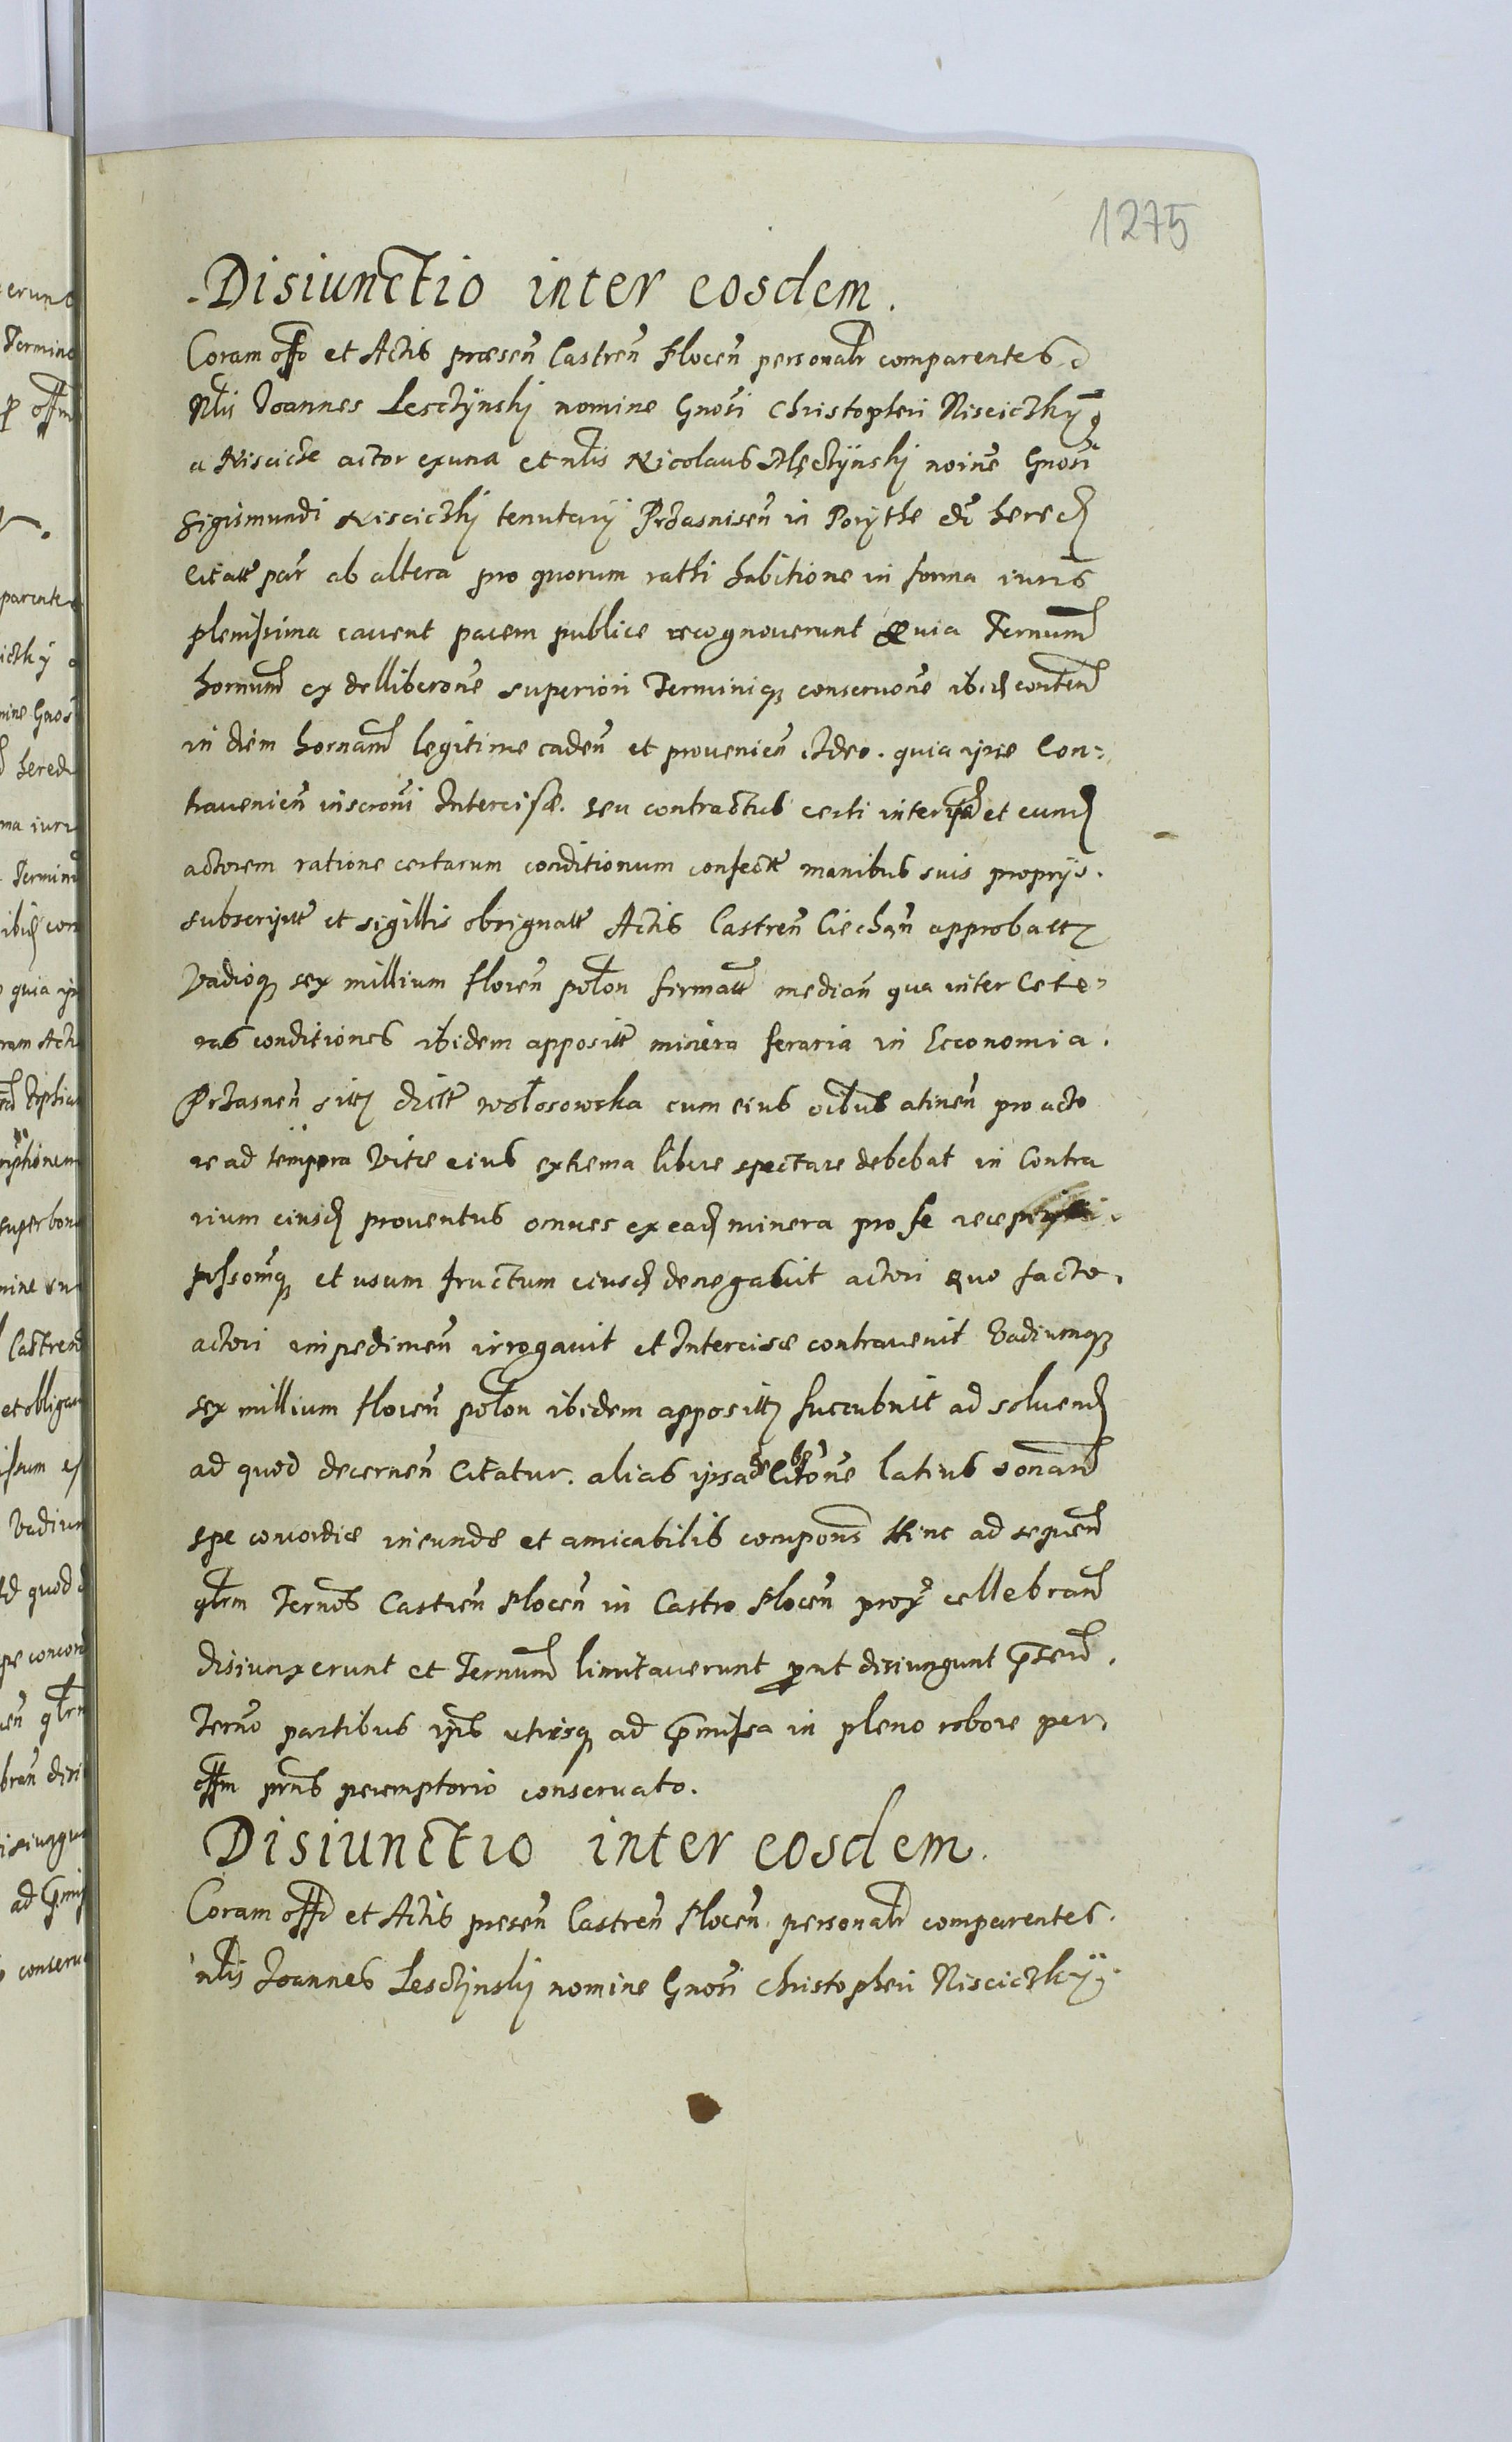 1275
Disiunctio inter eosdem.
Coram offo et Actis præsen Castren Plocen personalr comparentes
Nlis Joannes Lesczÿnskj nomine Gnosi Christopheri Nisciczkÿ
a Niscicze actor ex una et nlis Nicolaus noine Gnosi
Sigismundi Nisciczkj tenutarij Przasnisen in Porÿthe etc hered
citatt par ab altera pro quorum rathi habitione in forma iuris
plenissima cavent pacem publice recognoverunt Quia Ternum
hornum ex delliberone superiori Terminiq conservone ibid content
in diem hornam legitime caden et provenien Ideo. quia ipse Con-
travenien inscroni Intercisæ. seu contractus certi inter ipsd et eund
actorem ratione certarum conditionum confectt manibus suis proprijs.
subscriptt et sigillis obsignatt Actis Castren Ciechan approbatt
Vadioq sex millium floren polon firmatt median qua inter Cete-
ras conditiones ibidem appositt miniera feraria in Economia.
Przasnen sitt dictt wolosowska cum eius oibus atinen pro acto
re ad tempora Vitæ eius extrema libere spectare debebat in Contra
rium eiusd proventus omnes ex ead minera pro se recepit
possonemq et usum fructum eiusd denegabit actori Quo facto.
actori impedimen irrogavit et Intercisæ contravenit Vadiumq
sex millium floren polon ibidem appositt succubuit ad solvend
ad quod decernen Citatur. alias ipsa de libone latius sonand
spe concordiæ ineundæ et amicabilis compons hinc ad sequen
qlrm Ternos Castren Plocen in Castro Plocen prox cellebrand
disiunxerunt et Ternum limitaverunt prout disiungunt præsen.
Terno partibus ipsis utrisq ad præmissa in pleno robore per
offm prns peremptorio conservato.
Disiunctio inter eosdem.
Coram offo et Actis presen Castren Plocen personalr comparentes.
nlis Joannes Lesczÿnskj nomine Gnosi Christopheri Nisciczkÿ